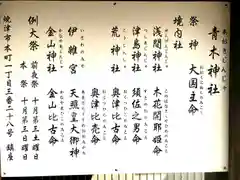 青木神社
あおきじんじゃ
祭神 大国主命
境内社
浅間神社 木花開耶姫命
津島神社 須佐之男命
荒神社 奥津比古命
奥津比売命
伊雑宮 天照皇大御神
金山神社 金山比古命
例大祭 前夜祭 十月第三土曜日
本祭 十月第三日曜日
焼津市本町一丁目三番二十八号 鎮座